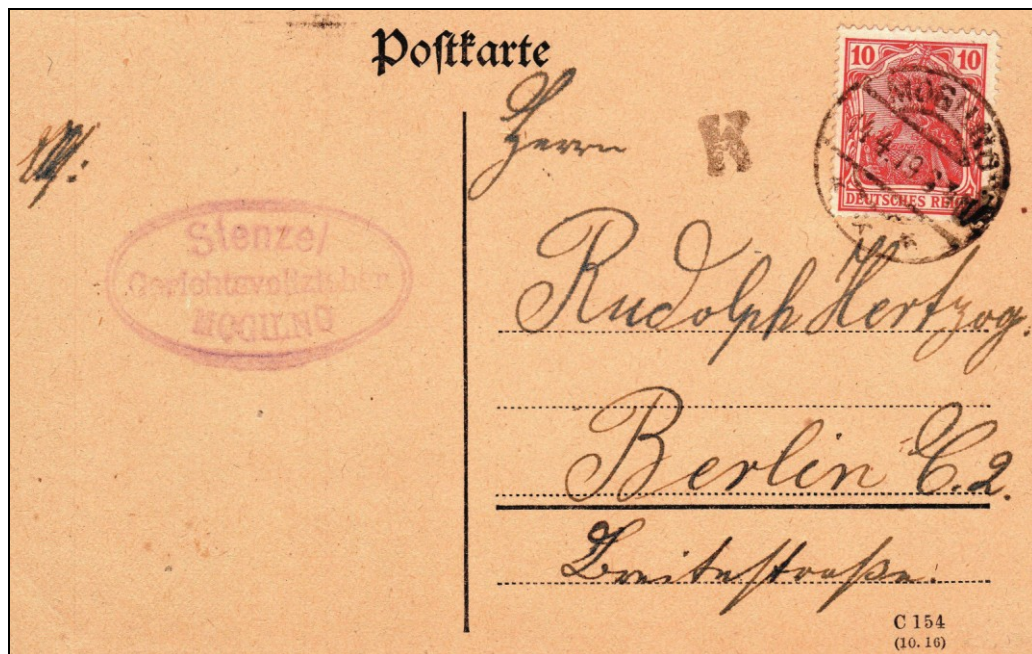 Postkarte
10 10
DEUTSCHES REICH
MOGILNO
14.4.19
K
Stenzel
Gerichtsvollzieher
MOGILNO
Herrn
Rudolph Hertzog.
Berlin C.2.
Breitestraße.
C 154
(10. 16)